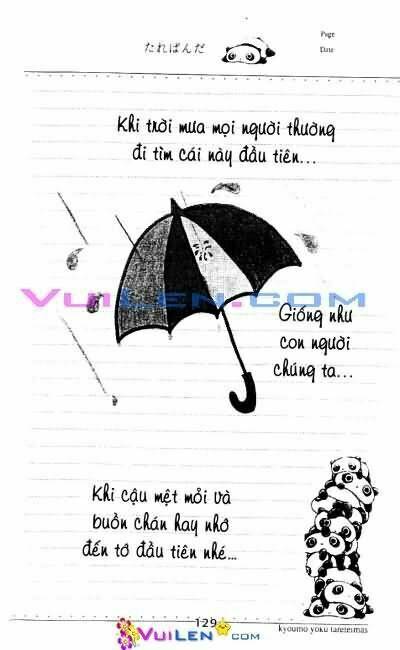 Page
たれぱんだ
Date
Khi trời mưa mọi người thường
đi tìm cái này đầu tiên...
VuiLen.com
Giống như
con người
chúng ta...
Khi cậu mệt mỏi và
buồn chán hãy nhớ
đến tớ đầu tiên nhé...
129
VuiLen.com
kyoumo yoku tareteimas